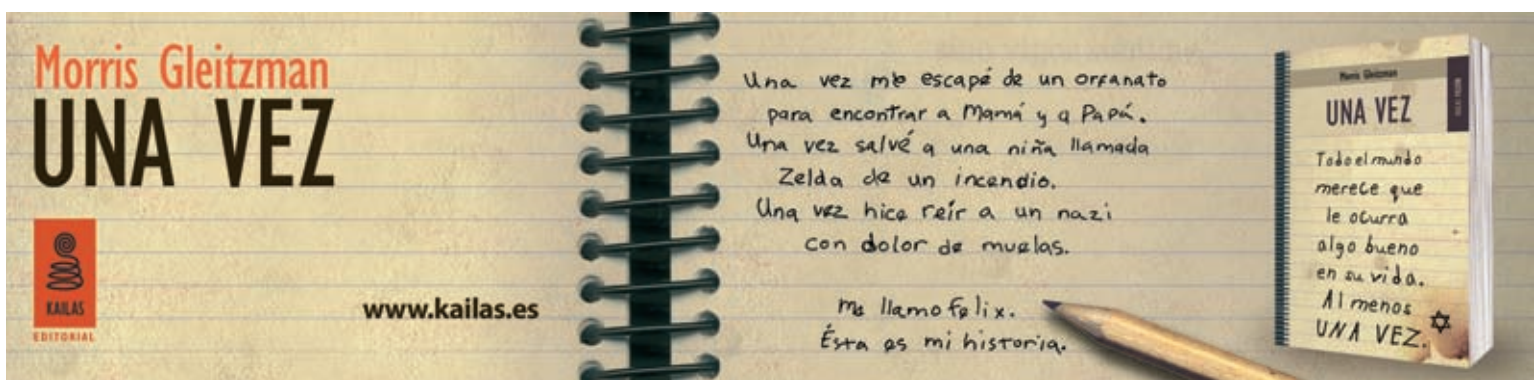 Morris Gleitzman
UNA VEZ
KAILAS
EDITORIAL
www.kailas.es
Una vez me escapé de un orfanato
para encontrar a Mamá y a Papá.
Una vez salvé a una niña llamada
Zelda de un incendio.
Una vez hice reír a un nazi
con dolor de muelas.
Me llamo Felix.
Ésta es mi historia.
Morris Gleitzman
UNA VEZ
Todo el mundo
merece que
le ocurra
algo bueno
en su vida.
Al menos
UNA VEZ.